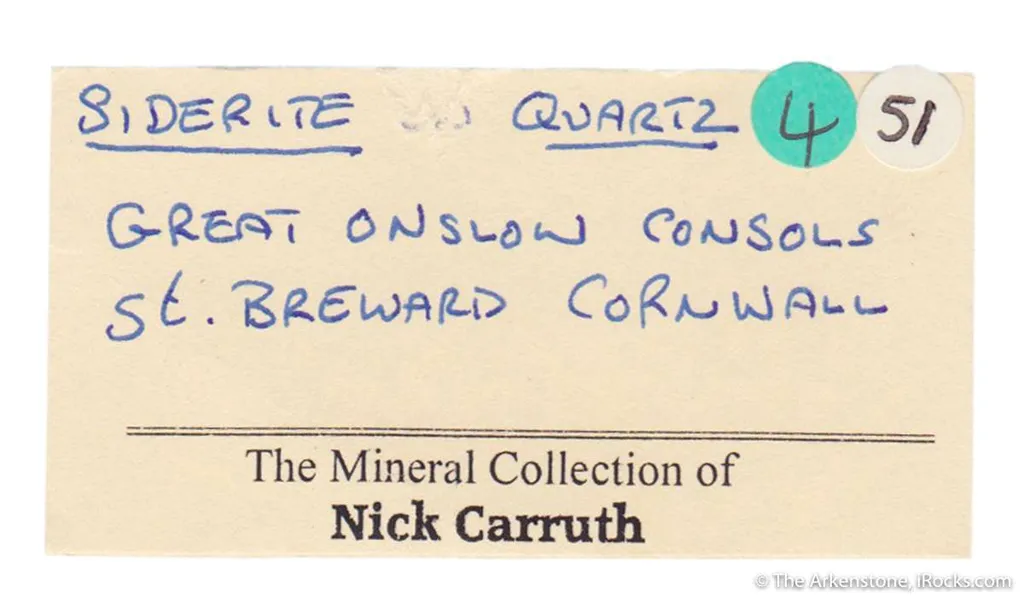 SIDERITE QUARTZ 4 51
GREAT ONSLOW CONSOLS
St. BREWARD CORNWALL
The Mineral Collection of
Nick Carruth
© The Arkenstone, iRocks.com